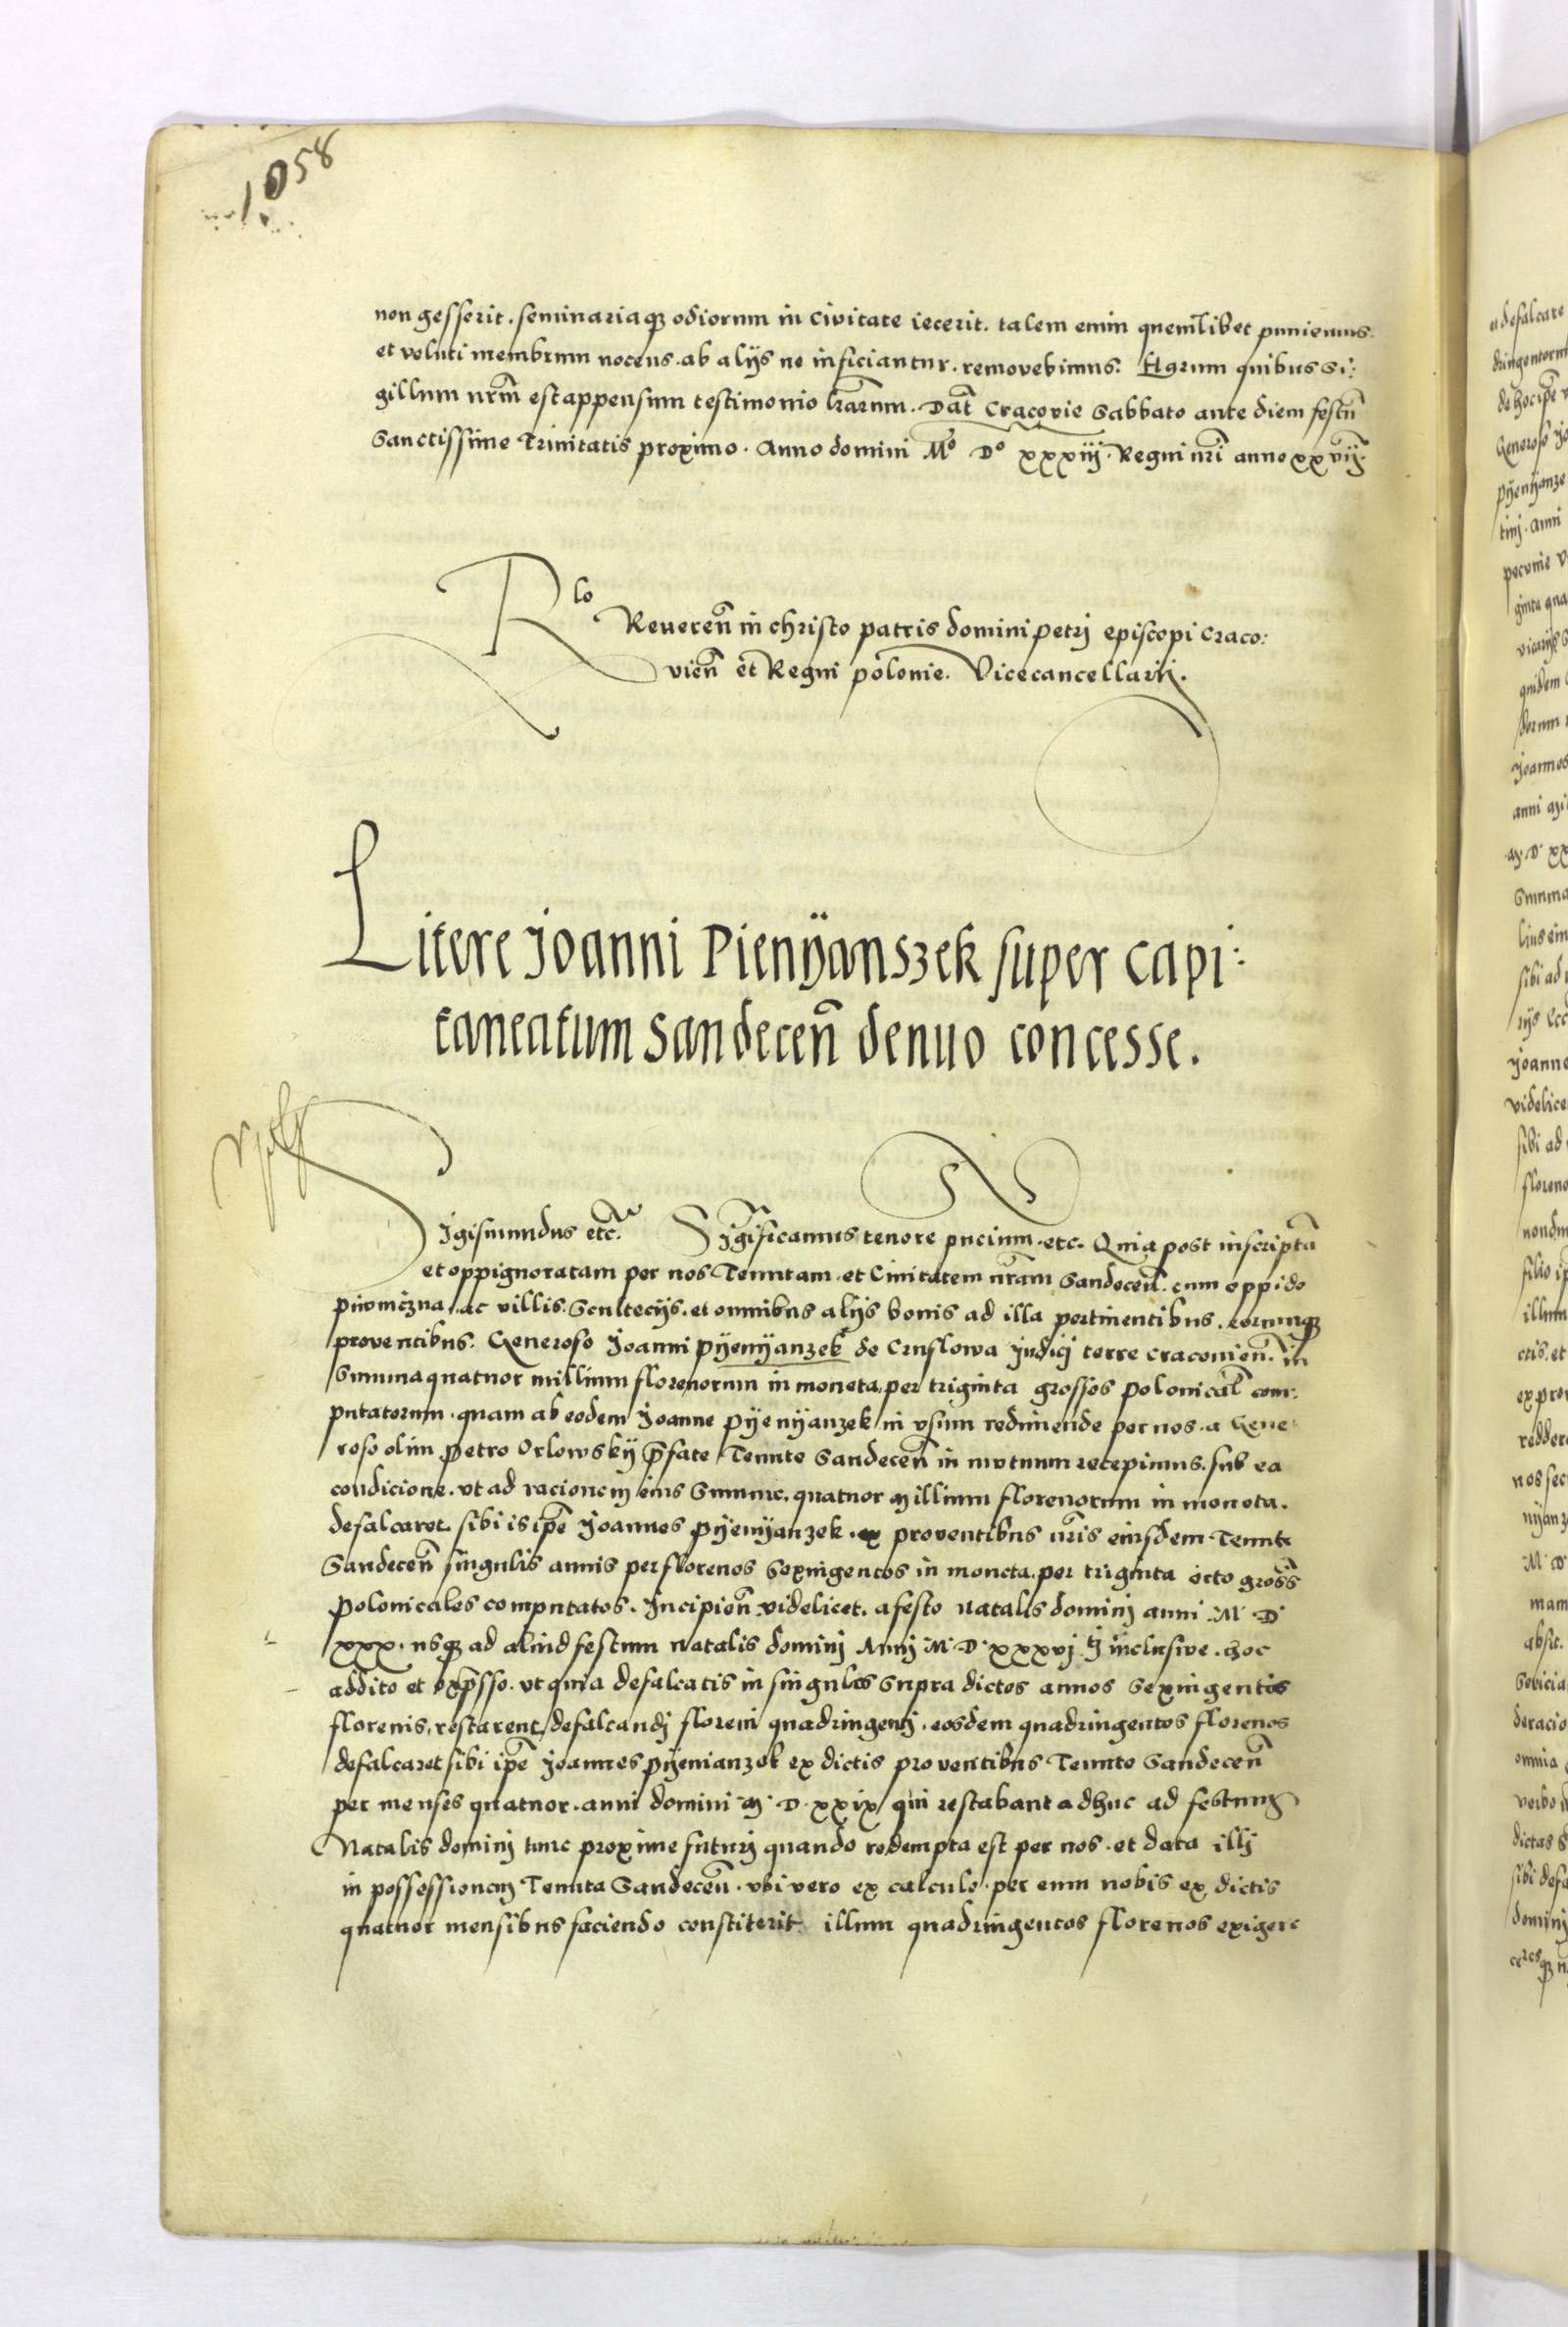 1058
non gesserit. seminariaq3 odiorum in civitate iecerit. talem enim quemlibet puniemus.
et veluti membrum nocens. ab alijs ne inficiantur. removebimus: Harum quibus Si:
gillum nrm̃ est appensum testimonio lr̃arum. Dat̃ Cracovie Sabbato ante diem festũ
Sanctissime Trinitatis proximo. Anno domini Mº Dº xxxiij. Regni nr̃i anno xxvij.
Rlo
Reveren̄ in christo patris domini petri episcopi Craco:
vien̄ et Regni polonie. Vicecancellarij.
Litere Joanni Pienÿanszek super Capi:
taneatum Sandecen̄ denuo concesse.
Sigismundus etc̃. Significamus tenore pn̄cium. etc. Quia post inscriptã
et oppignoratam per nos Tenutam. et Civitatem nr̃am Sandecen̄. cum oppido
piwniczna. ac villis. Scultecijs. et omnibus alijs bonis ad illa pertinentibus. eorumq3
proventibus. Generoso Joanni pÿenÿanzek de Cruslowa judicj terre Cracovien̄. in
Summa quatuor millium florenorum in moneta, per triginta grossos polonical̃ com:
putatorum. quam ab eodem Joanne pÿenÿanzek in vsum redimende per nos. a Gene:
roso olim petro Orlowskÿ p̄fate Tenute Sandecen̄ in mutuum recepimus. sub ea
condicione. vt ad racionem eius Summe. quatuor millium florenorum in moneta.
defalcaret sibi is ip̄e Joannes pÿenÿanzek. ex proventibus nr̃is eiusdem Tenute
Sandecen̄ singulis annis per florenos Sexingentos in moneta. per triginta octo gross̃
polonicales computatos. Incipien̄ videlicet. a festo Natalis dominj anni M. D.
xxx. usq3 ad aliud festum Natalis dominj Annj M. D. xxxvj. inclusive. hoc
addito et exp̄sso. vt quia defalcatis in singulos supra dictos annos Sexingentis
florenis, restarent defalcandj floreni quadringentj. eosdem quadringentos florenos
defalcaret sibi ip̄e Joannes pÿenianzek ex dictis proventibus Tenute Sandecen̄
per menses quatuor. anni domini M. D. xxix qui restabant adhuc ad festum
Natalis dominj tunc proxime futurj quando redempta est per nos. et data illj
in possessionem Tenuta Sandecen̄. vbi vero ex calculo. per eum nobis ex dictis
quatuor mensibus faciendo constiterit. illum quadringentos florenos exigere